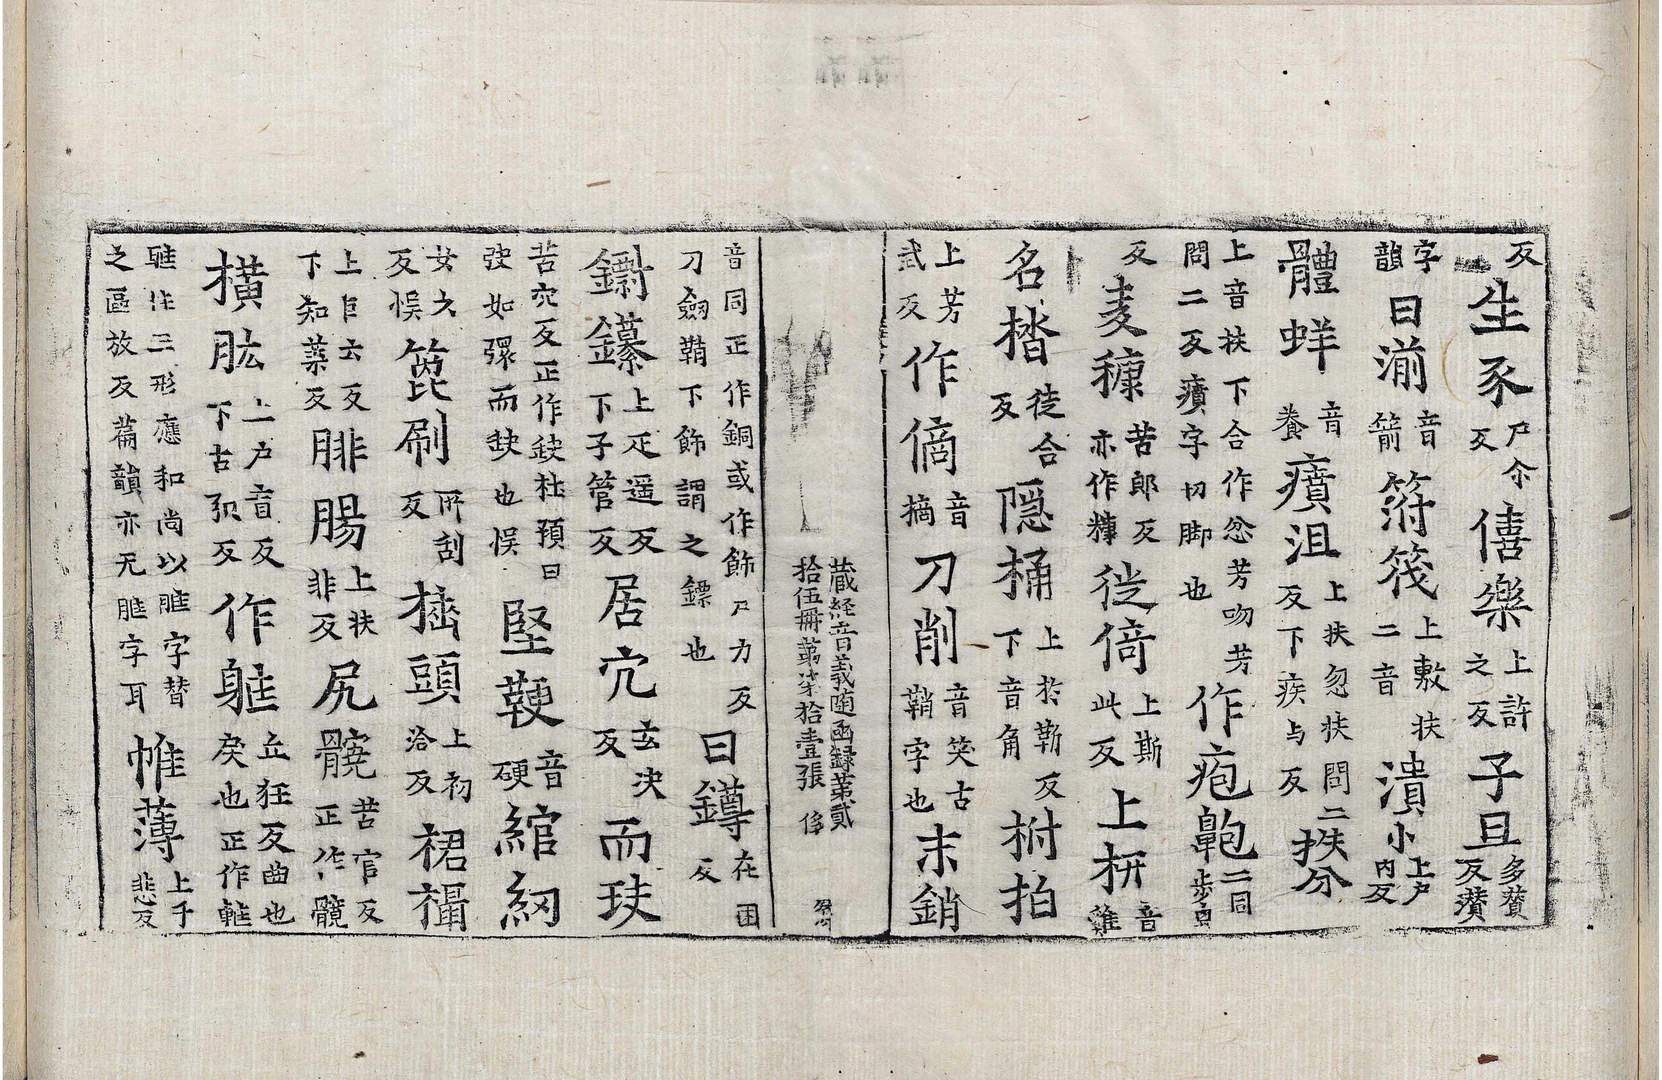 反生豕尸尒反僖樂上許之反子旦多賛反瓚
字韻曰湔音箭箁筏上敷扶二音潰小上戶內反
體蛘音養癀沮上扶忽扶問二反下疾与反㧒分
上音扶下合作忿芳吻芳問二反癀字切脚也作疱皰二同步皃
反麦穅苦郎反亦作糠徙倚上斯此反上枅音雞
名㳫徒合反隠桶上於靳反下音角柎拍
上芳武反作㒀音摘刀削音笑古鞘字也末銷
藏経音義随函録苐貳拾伍冊苐柒拾壹張
音同正作銅或作飾尸力反曰鐏在困反
刀劔鞘下飾謂之鏢也
鐗䥖上疋遥反下子管反居宂玄决反而玞
苦宂反正作䦼杜預曰玦如環而䦼也悮堅鞕音硬綰紉
女久反悮箆刷所刮反㨘頭上初洽反裙襵
上巨六反下知葉反腓腸上扶非反尻髖苦官反正作髖
橫肱上戶盲反下古弘反作軭丘狂反曲也戾也正作軭
軭作三形應和尚以𦚞字替之區放反萹韻亦无𦚞字耳帷薄上于悲反